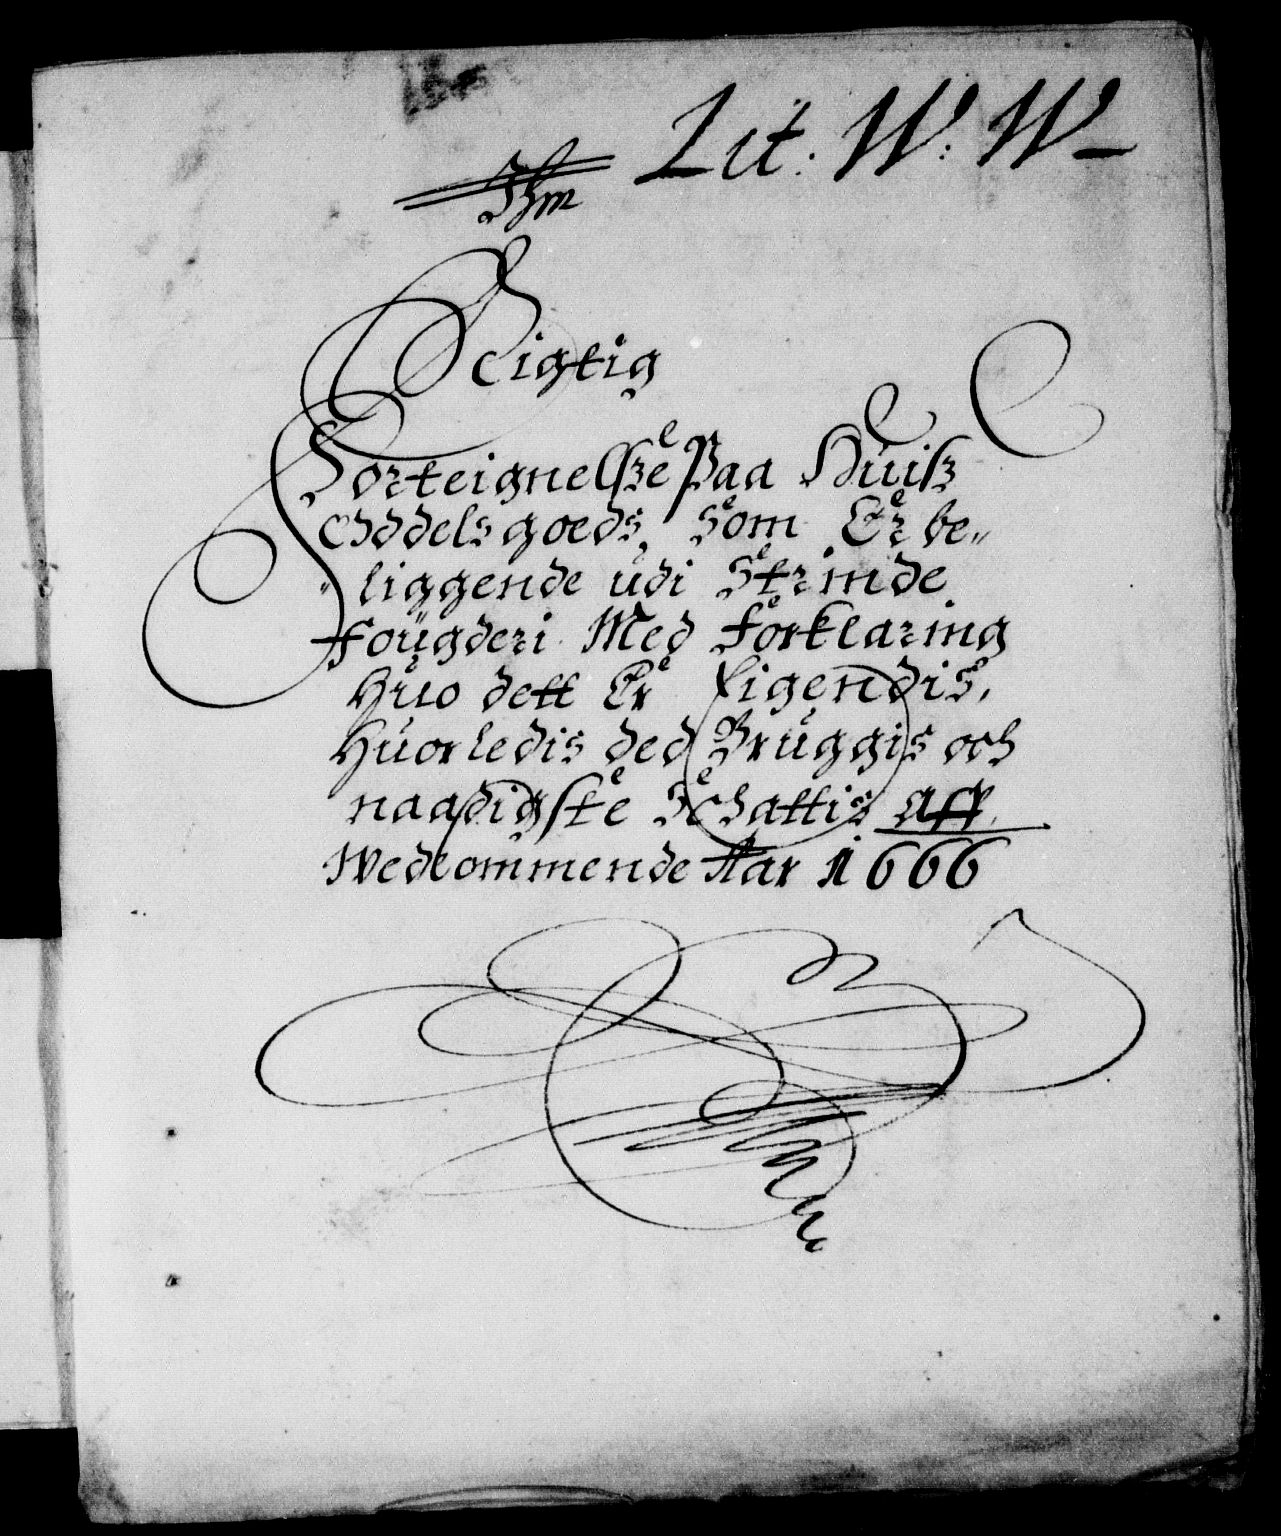 Lit: W: W
Rigtig
Forteignelsze Paa Huisz
Oddels goeds, Som Er be„
„liggende udi Strinde
fougderi Med forklaring
Huo dett Er Eigendis,
Huorledis ded Bruggis och
naadigste Schattis Aff,
Wedkommende Aar 1666